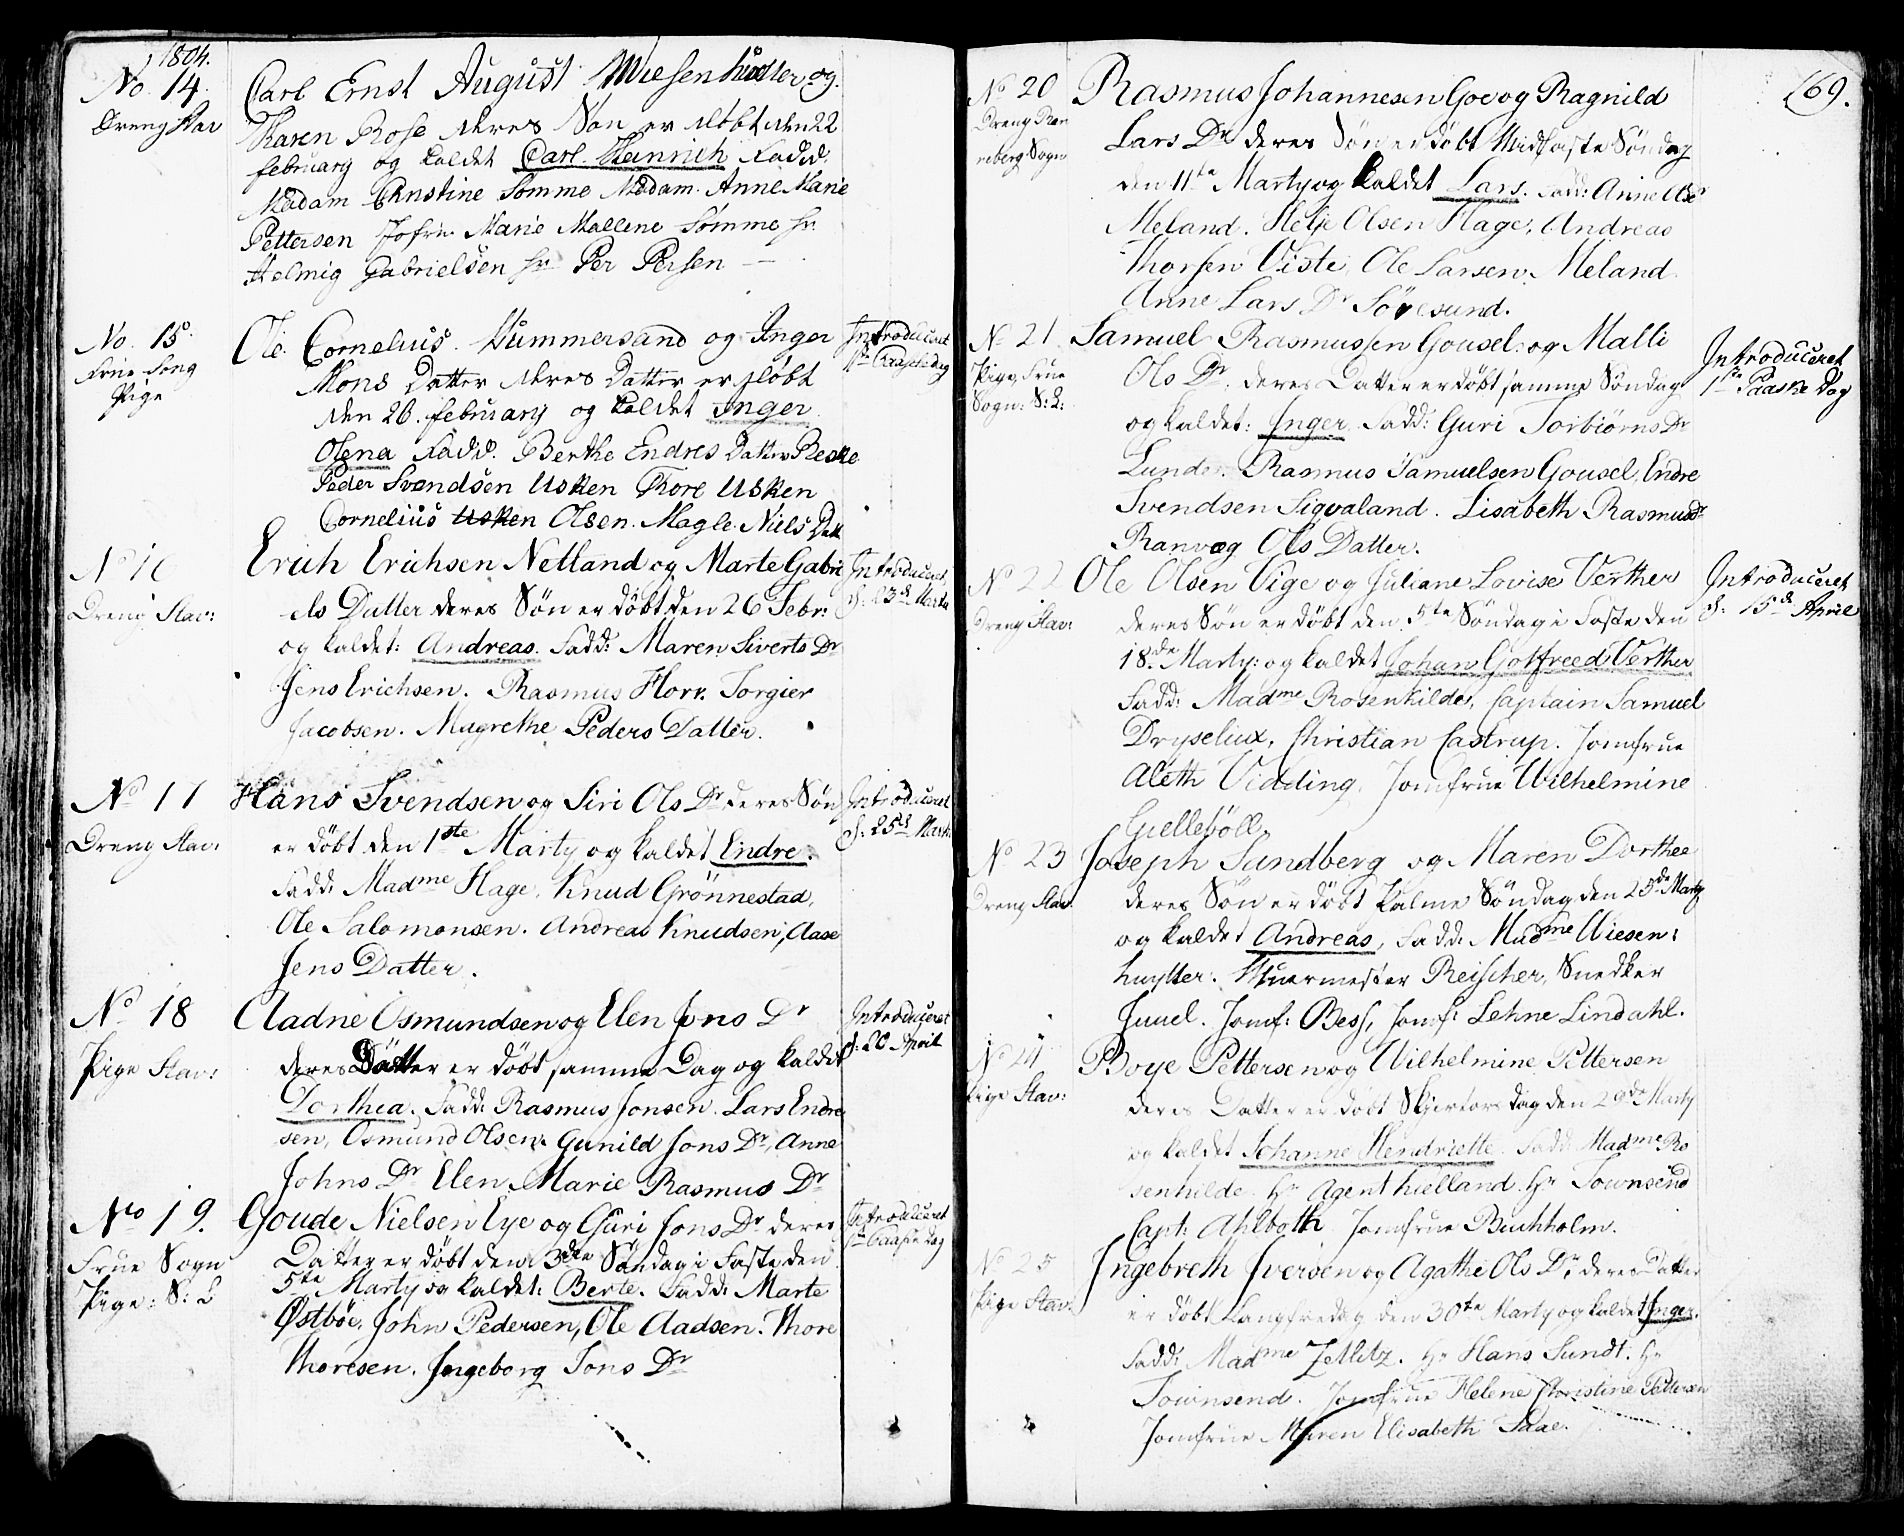 1804.
No. 14.
Dreng Stav
Carl Ernst August Wiesenhütter og
Karen Rose deres Søn er døbt den 22
february og kaldet Carl Heinrich Fadd.
Madam Christine Sømme Madam Anne Marie
Pettersen Jofru Marie Mallene Sømme hr.
Helmig Gabrielsen hr Per Persen —
No. 15.
Frue Song
Pige
Ole Cornelius Hummersand og Inger
Mons Datter deres Datter er døbt
den 26. february og kaldet Inger
Olena Fadd. Berthe Endres Datter Reske
Peder Svendsen Usken Thore Usken
Cornelius Usken Olsen. Magle Niels Datt
Introduceret
1ste Paaske dag
No 16
Dreng Stav:
Erich Erichsen Netland og Marte Gabri
els Datter deres Søn er døbt den 26 Febr:
og kaldet: Andreas. Fadd: Maren Siverts Dr
Jens Erichsen. Rasmus Horr. Torgier
Jacobsen. Magrethe Peders Datter.
Introduceret
d: 23d Marti
No 17
Dreng Stav:
Hans Svendsen og Siri Ols Dr deres Søn
er døbt den 1ste Marty og kaldet Endre.
Fadd: Madme Hage, Knud Grønnestad,
Ole Salomonsen. Andreas Knudsen, Aase
Jens Datter.
Introduceret
d: 25d Marti
No 18
Pige Stav:
Aadne Osmundsen og Elen Jons Dr
deres Datter er døbt samme Dag og kaldet
Dorthea. Fadd: Rasmus Jonsen. Lars Endre
sen, Osmund Olsen. Gunild Jons Dr, Anne
Johns Dr Elen Marie Rasmus Dr
Introduceret
d: 20 April
No 19.
Frue Sogn
Pige: S: L
Goude Nielsen Eye og Guri Jons Dr deres
Datter er døbt den 3die Søndag i Faste den
5te Marty og kaldet: Berte. Fadd: Marte
Østbøe, John Pedersen, Ole Aadsen. Thore
Thoresen. Ingeborg Jons Dr
Introduceret
1ste Paaske dag
69.
No 20
Dreng Ran
neberg Sogn
Rasmus Johannesen Goe og Ragnild
Lars Dr deres Søn er døbt Midfaste Søndag
den 11te Marty og kaldet Lars. Fadd: Anne
Meland. Helje Olsen Hage, Andreas
Thorsen Viste, Ole Larsen Meland
Anne Lars Dr Søresund.
No 21
Pige, Frue
Sogn: S: L:
Samuel Rasmussen Gousel og Malli
Ols Dr, deres Datter er døbt samme Søndag
og kaldet: Inger. Fadd: Guri Torbiørns Dr
Lunde. Rasmus Samuelsen Gousel, Endre
Svendsen Sigvaland. Lisabeth Rasmus Dr
Ranvæg Ols Datter.
Introduceret
1ste Paaske Dag
No 22
Dreng Stav:
Ole Olsen Vige og Juliane Lovise Verther
deres Søn er døbt den 5te Søndag i Faste den
18de Marty: og kaldet Johan Gotfreed Verther
Fadd: Madme Rosenkilde, Captain Samuel
Dryselius, Christian Castrup. Jomfrue
Aleth Vidding. Jomfrue Wilhelmine
Giellebøll.
Introduceret
d: 15de April
No 23
Dreng Stav:
Joseph Sundberg og Maren Dorthee
deres Søn er døbt Palme Søndag den 25de Marty
og kaldet Andreas, Fadd: Madme Wiesen:
huytter: Muermester Reischer, Snedker
Juuel. Jomf: Bess, Jomf: Lehne Lindahl.
No 24
Pige Stav:
Boye Pettersen og Wilhelmine Pettersen
deres Datter er døbt Skjertors dag den 29de Marty
og kaldet Johanne Hendriette. Fadd: Madme Ro
senkilde. Hr Agent Kielland. Hr Townsend
Capt: Ahlboth. Jomfrue Buchholm.
No 25
Pige Stav:
Ingebreth Iversen og Agathe Ols Dr deres Datter
er døbt Langfredag den 30te Marty og kaldet Inger.
Fadd: Madme Zetlitz. Hr Hans Sundt. Hr
Townsend. Jomfrue Helene Christine Pettersen
Jomfrue Maren Elisabeth Saae.